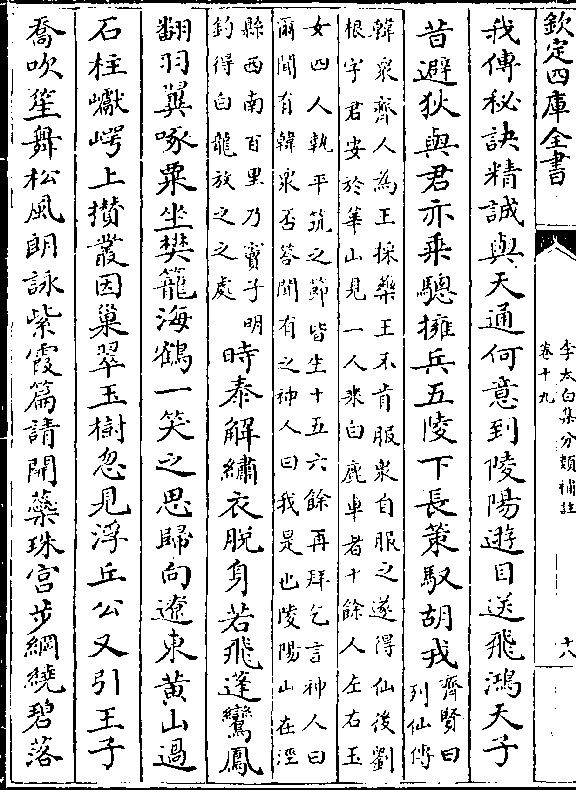 欽定四庫全書
李太白集分類補註
卷十九
十八
我傳秘訣精誠與天通何意到陵陽遊目送飛鴻天子
昔避狄與君亦乗驄擁兵五陵下長策馭胡戎
齊賢曰
列仙傳
韓衆齊人為王採藥王不肯服衆自服之遂得仙後劉
根字君安於華山見一人乘白鹿車者十餘人左右玉
女四人執平筑之節皆生十五六餘再拜乞言神人曰
爾聞有韓衆否答聞有之神人曰我是也陵陽山在涇
縣西南百里乃竇子明
釣得白龍放之之處
時泰解繡衣脫身若飛蓬鸞鳳
翻羽翼啄粟坐樊籠海鶴一笑之思歸向遼東黃山過
石柱巘崿上攅叢因巢翠玉樹忽見浮丘公又引王子
喬吹笙舞松風朗詠紫霞篇請開蘂珠宮步綱繞碧落